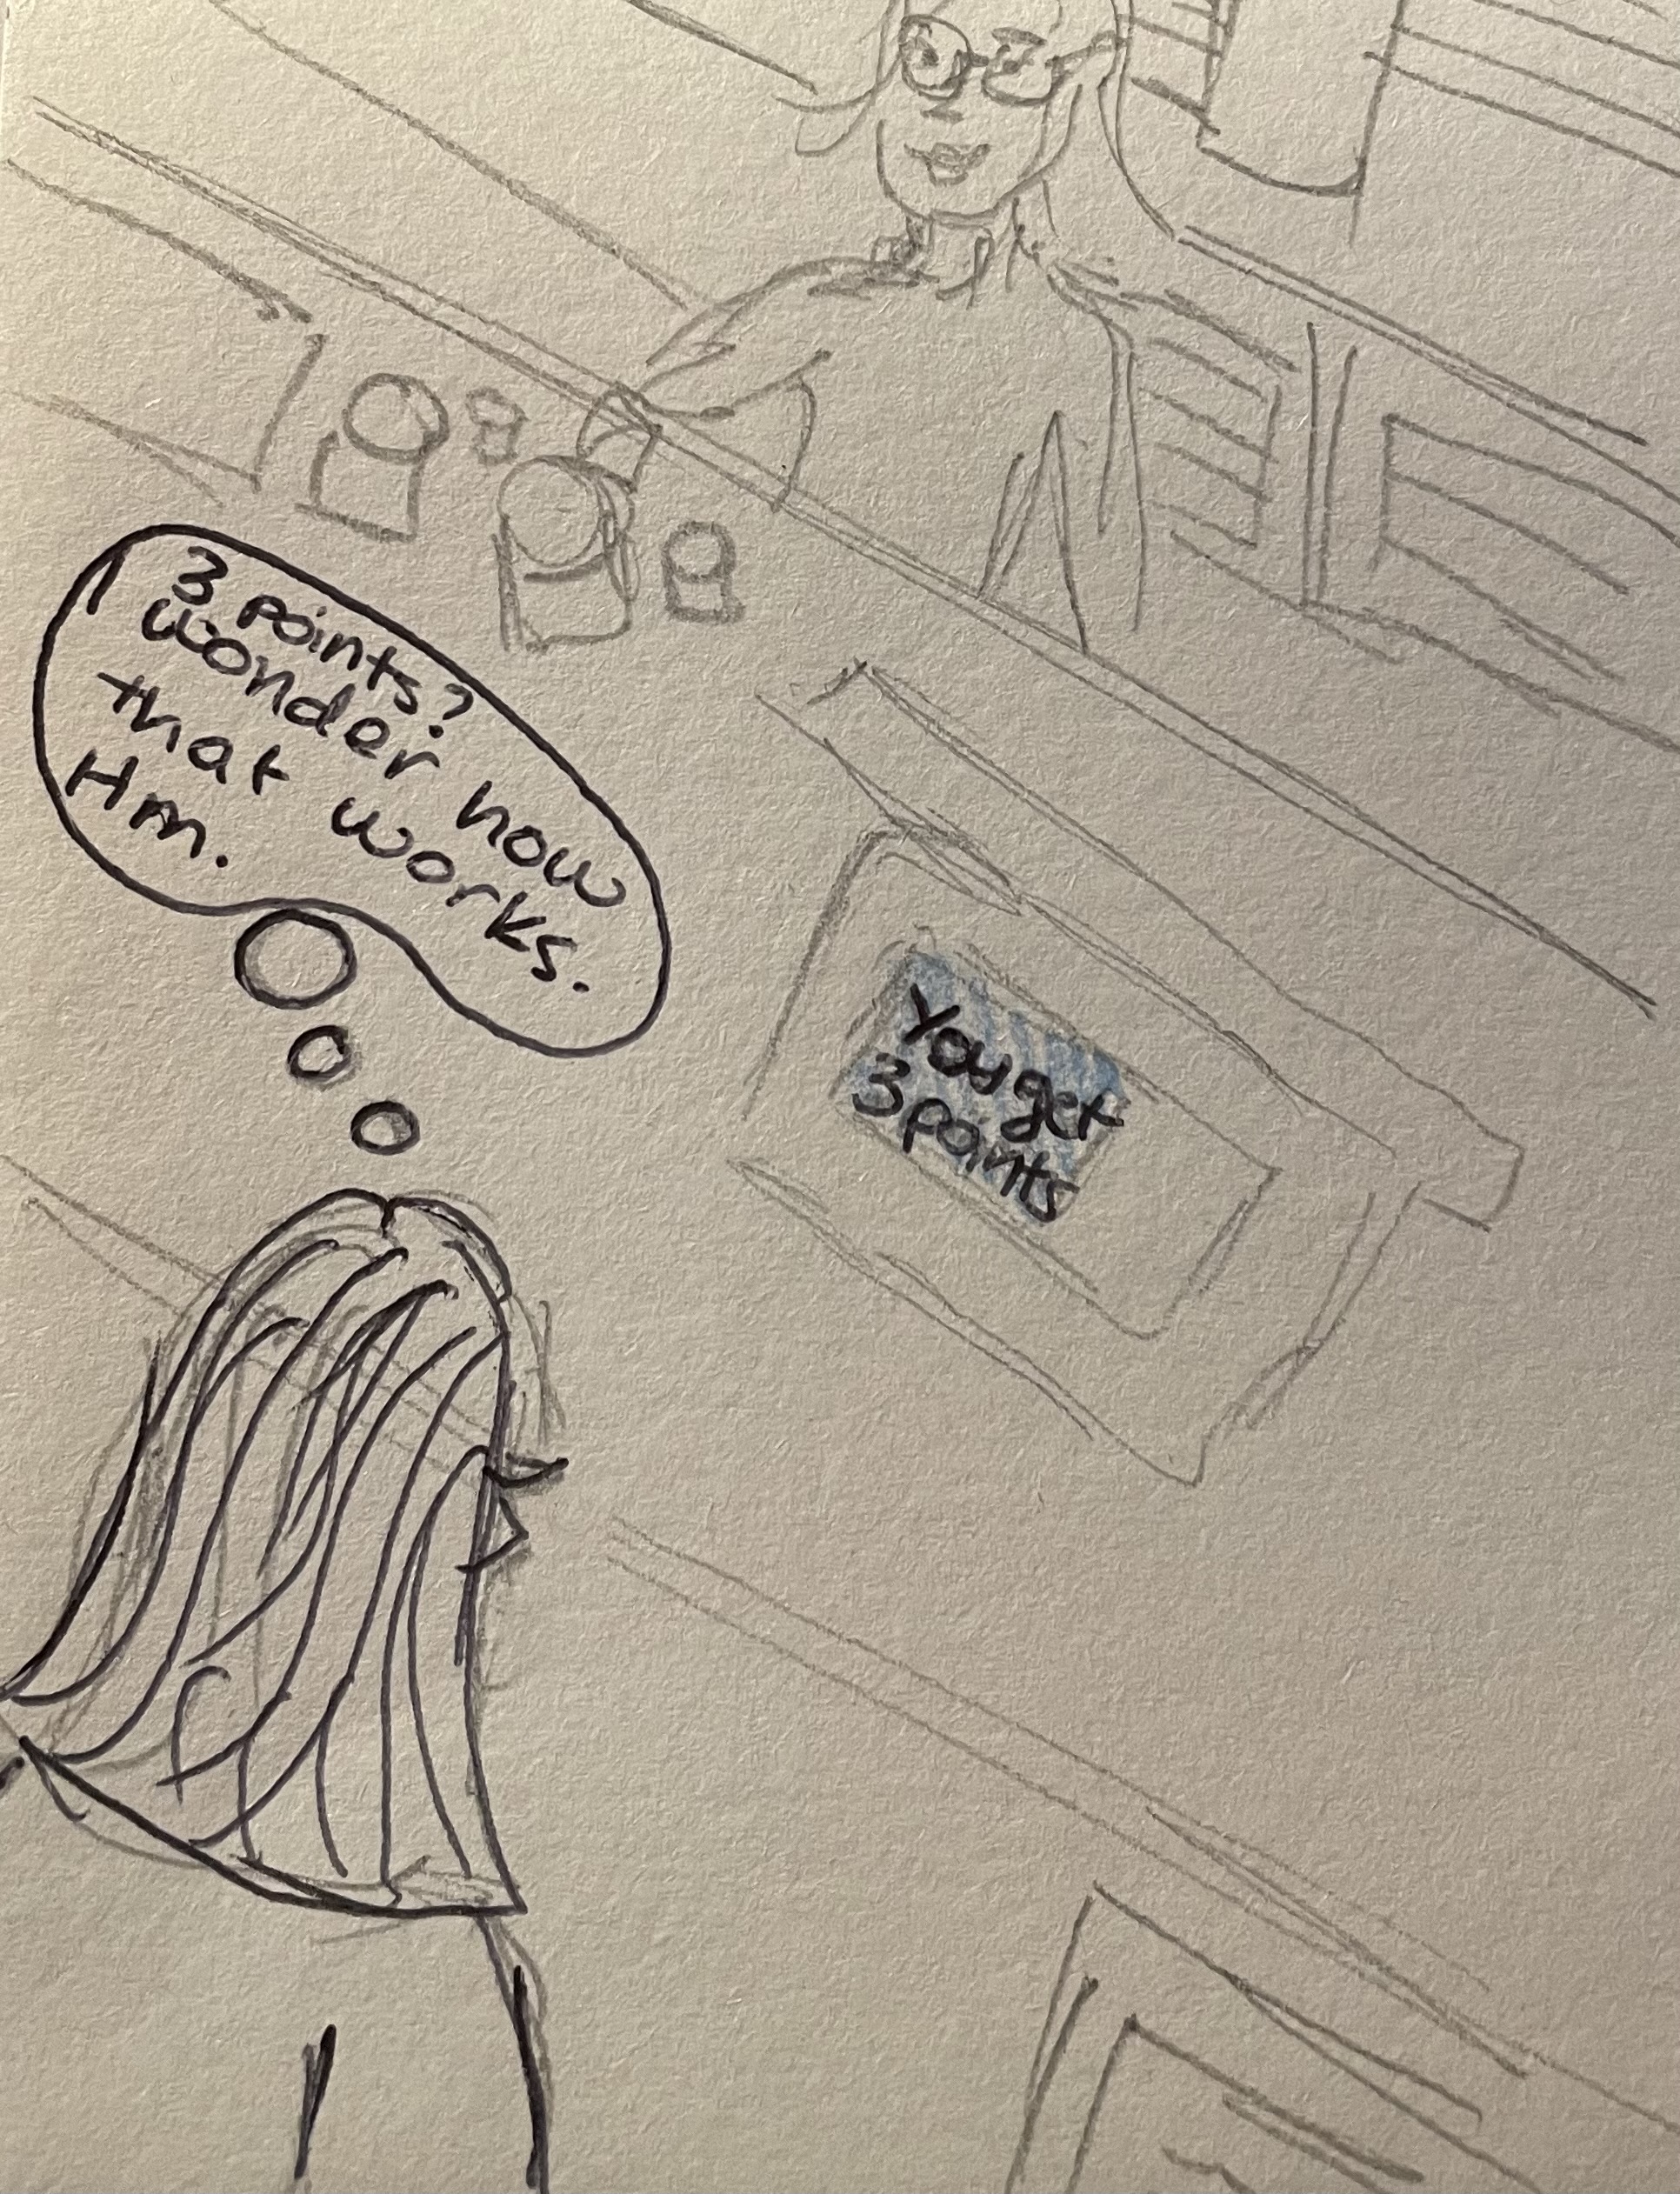 3 points?
I wonder how
that works.
Hm.
You get
3 points